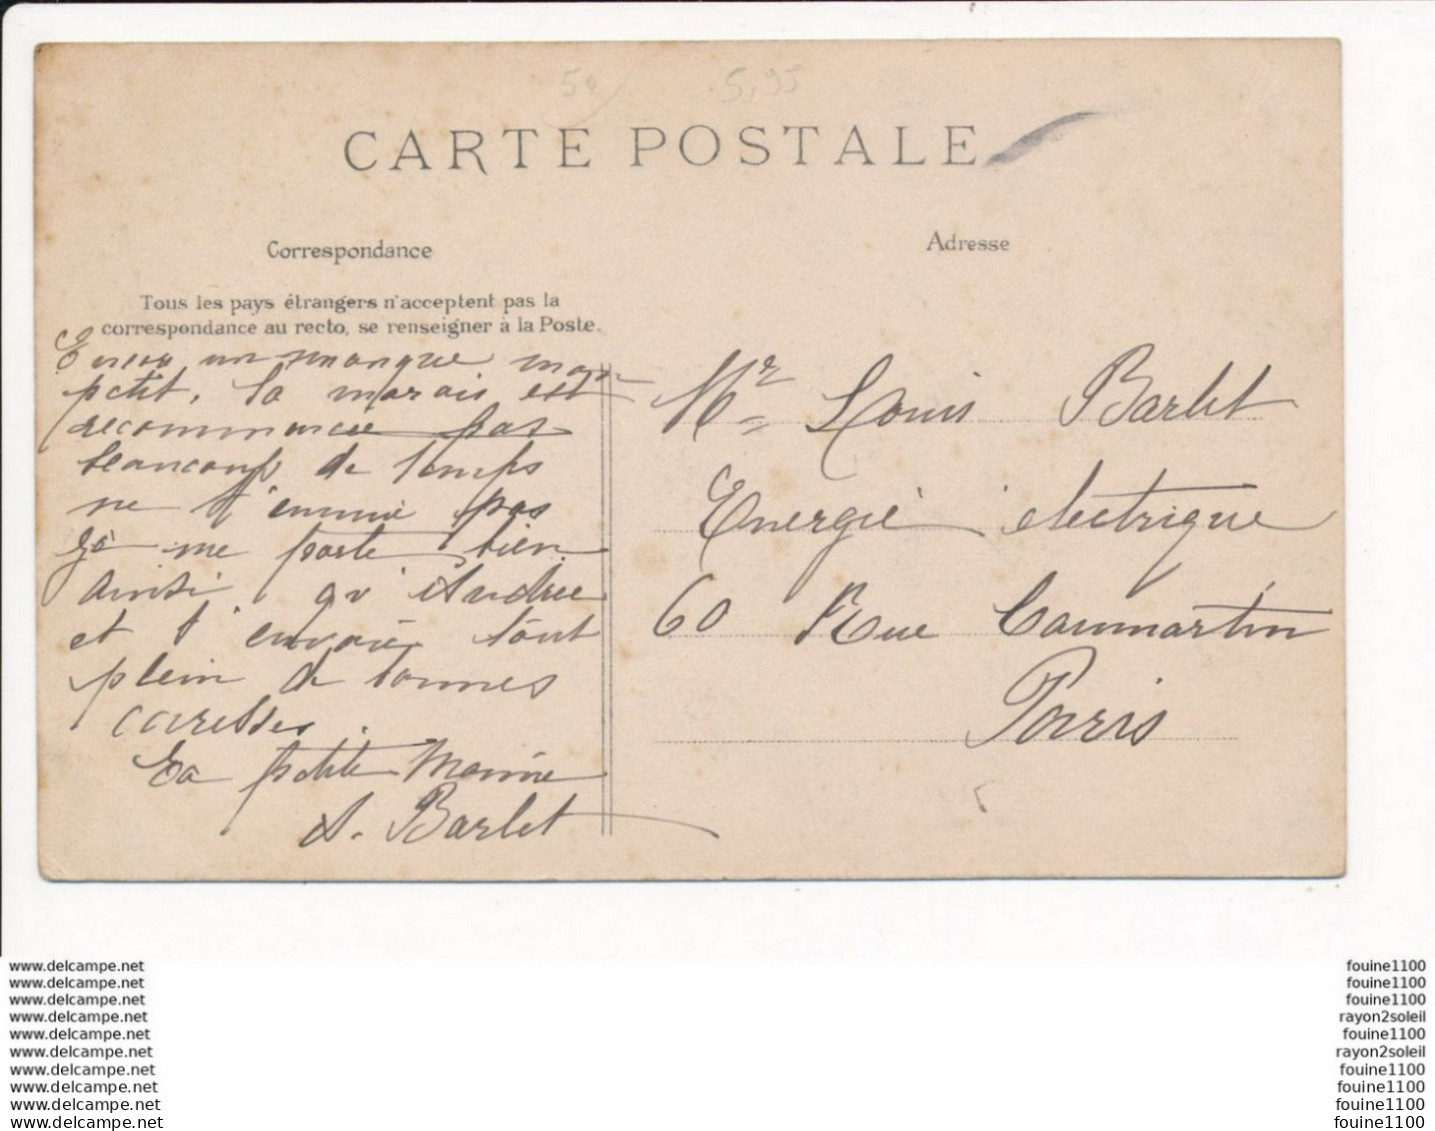 50
5,95
CARTE POSTALE
Correspondance
Adresse
Tous les pays étrangers n'acceptent pas la
correspondance au recto, se renseigner à la Poste.
un manque mon
petit, la marais est
recommencée pas
beaucoup de temps
ne t'ennuie pas
me porte bien
ainsi qu'Andrée
et t'envoie tout
plein de bonnes
caresses.
Ta petite Mamie
A. Barlet
Mr Louis Barlet
Energie électrique
60 Rue Caumartin
Paris
www.delcampe.net
www.delcampe.net
www.delcampe.net
www.delcampe.net
www.delcampe.net
www.delcampe.net
www.delcampe.net
www.delcampe.net
www.delcampe.net
www.delcampe.net
fouine1100
fouine1100
fouine1100
rayon2soleil
fouine1100
rayon2soleil
fouine1100
fouine1100
fouine1100
fouine1100